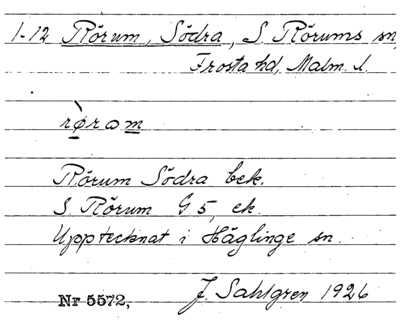 1-12 Rörum, Södra, S. Rörums sn,
Frosta hd, Malm. l.
rø̀rɷm
Rörum Södra bek.
S. Rörum G 5, ek.
Upptecknat i Häglinge sn.
Nr 5572, J. Sahlgren 1926